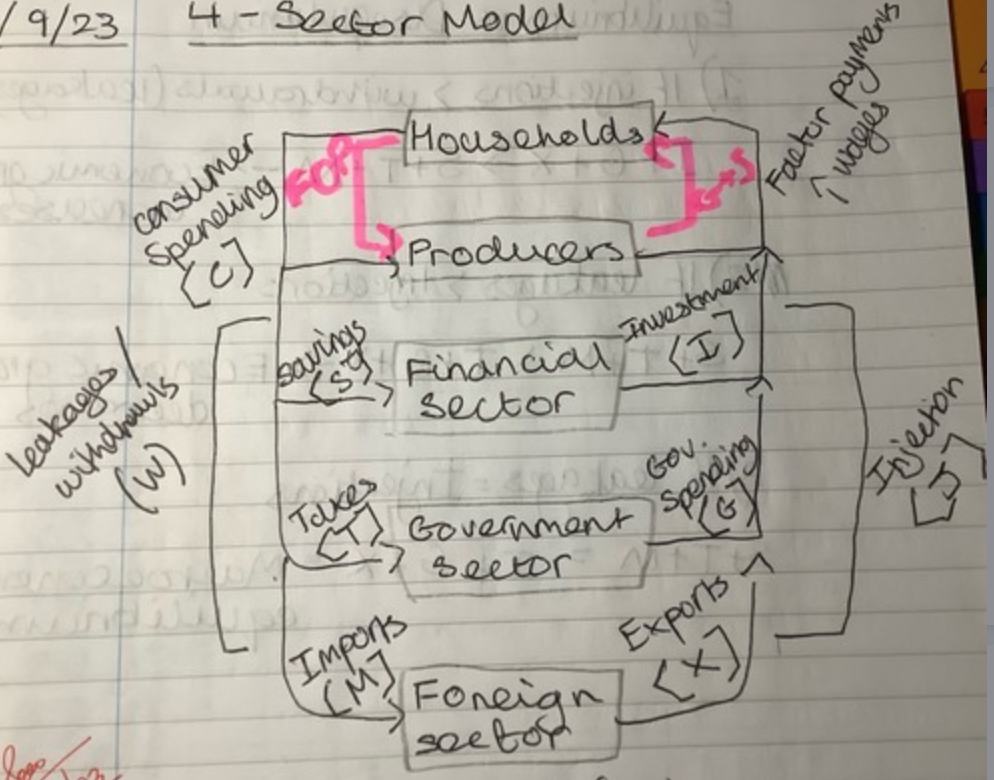 /9/23 4-Sector Model
Households
consumer
Spending
[C]
FOP
G+S
Factor payments
↑ wages
Producers
Savings
(S)
Financial
sector
Investment
[I]
leakages /
withdrawals
(W)
Injection
[J]
Taxes
(T)
Government
sector
Gov.
Spending
[G]
Imports
(M)
Foreign
sector
Exports
[X]